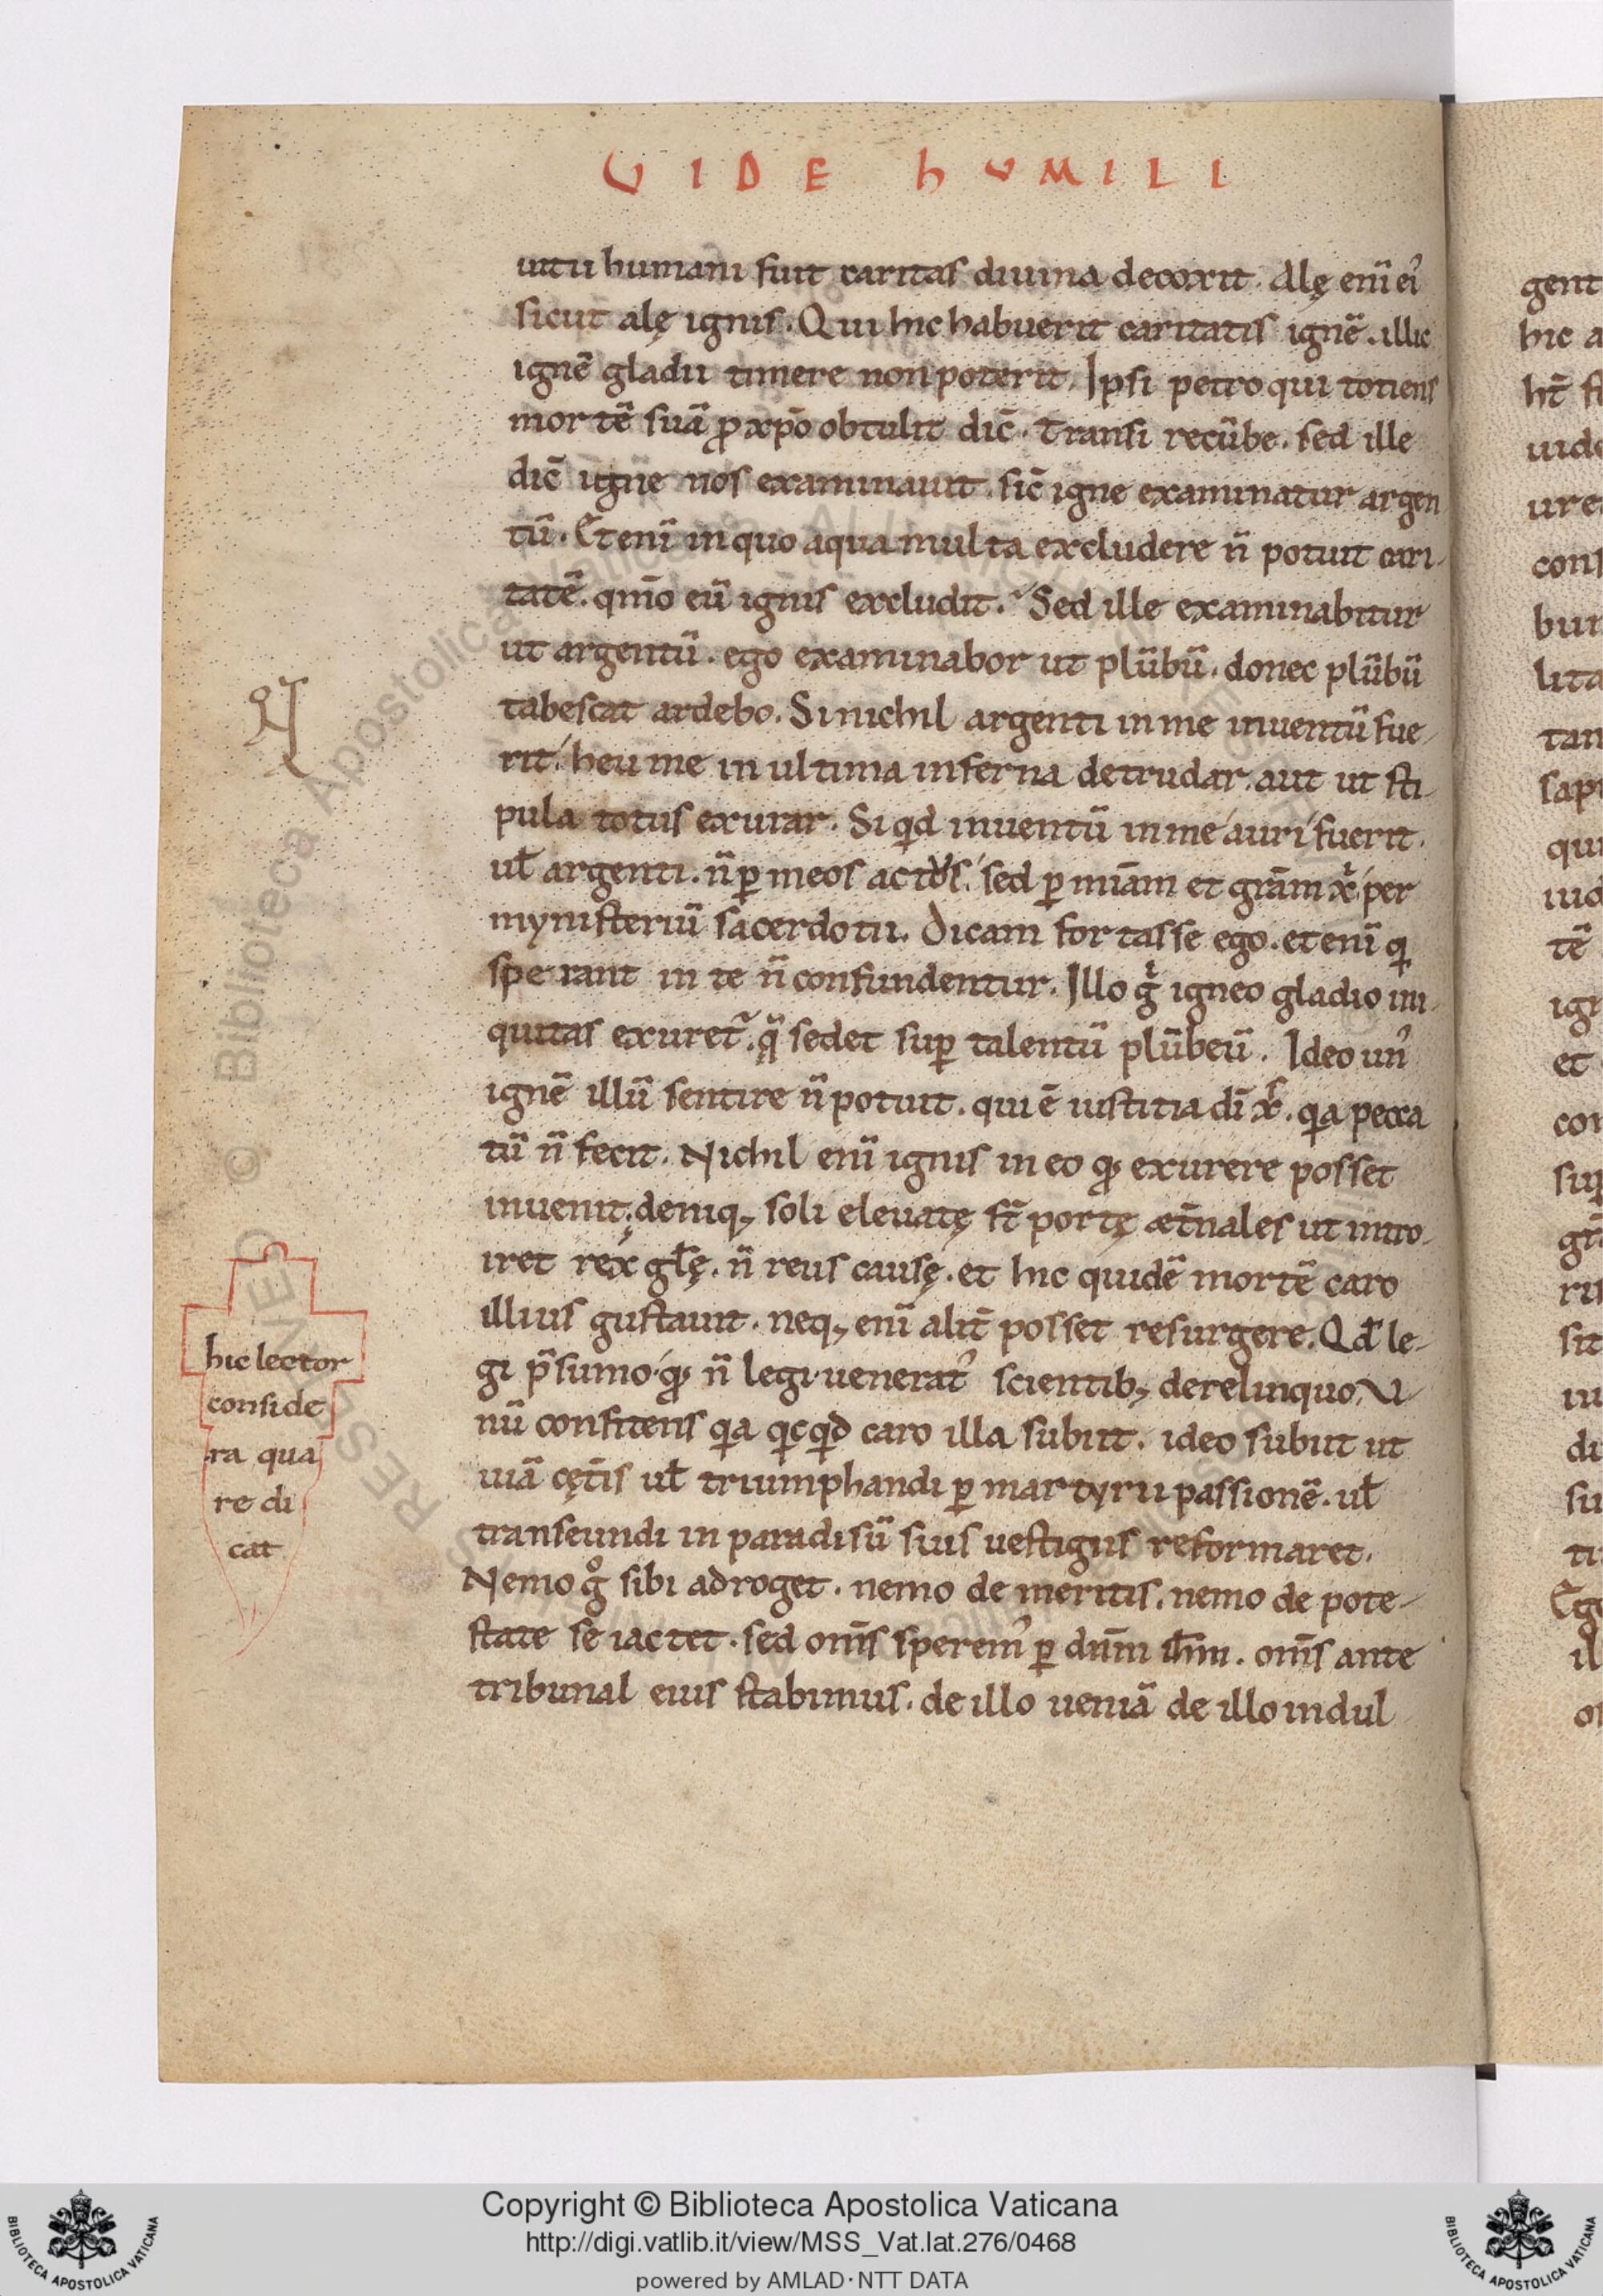 VIDE HUMILI
uitii humani fuit caritas diuina decoxit. Alę eni̅ ei᾽
sicut alę ignis. Qui hic habuerit caritatis igne̅. illic
igne̅ gladii timere non poterit. Ipsi petro qui totiens
morte̅ sua̅ ꝓ xp̅o obtulit dic̅. Transi recu̅be. sed ille
dic̅ igne nos examinauit. sic̅ igne examinatur argen
tu̅. Et eni̅ in quo aqua multa excludere n̅ potuit cari-
tate̅. qm̅o eu̅ ignis excludit. Sed ille examinabitur
ut argentu̅. ego examinabor ut plu̅bu̅. donec plu̅bu̅
tabescat ardebo. Si nichil argenti in me inuentu̅ fue-
rit. heu me in ultima inferna detrudar. aut ut sti-
pula totus exurar. Si qd inuentu̅ in me auri fuerit.
ul̅ argenti. n̅ ꝑ meos actus. sed ꝑ mia̅m et gra̅m x̅ per
mynisteriu̅ sacerdotii. Dicam fortasse ego. et eni̅ q
sperant in te n̅ confundentur. Illo g̅ igneo gladio ini-
quitas exuret᾽. q̅ sedet suꝑ talentu̅ plu̅beu̅. Ideo un᾽
igne̅ illu̅ sentire n̅ potuit. qui e̅ iustitia di̅ x̅. qa pecca
tu̅ n̅ fecit. Nichil eni̅ ignis in eo qđ exurere posset
inuenit; deniq; soli eleuatę st̅ portę æt̅nales ut intro-
iret rex gl̅ę. n̅ reus causę. et hic quide̅ morte̅ caro
illius gustauit. neq; eni̅ alit̅ posset resurgere. Qđ le-
gi p̅sumo. qđ n̅ legi. uenerat᾽ scientib; derelinquo. V-
nu̅ confitens qa qcqd caro illa subiit. ideo subiit ut
uia̅ cęt̅is ul̅ triumphandi ꝑ martyrii passione̅. ul̅
transeundi in paradisu̅ suis uestigiis reformaret.
Nemo g° sibi adroget. nemo de meritis. nemo de pote-
state se iactet. sed om̅s sperem᾽ ꝑ dn̅m ih̅m. om̅s ante
tribunal eius stabimus. de illo uenia̅ de illo indul
hic lector
conside
ra qua
re di
cat
gent
hic a
ht̅
uide
ure
con
bur
lita
tan
sap
qui
iud
te̅
ign
et
con
sup
gr̅
ri
sit
iu
di
su
ti
Eg
il
o
© Biblioteca Apostolica Vaticana
Copyright © Biblioteca Apostolica Vaticana
http://digi.vatlib.it/view/MSS_Vat.lat.276/0468
powered by AMLAD·NTT DATA
BIBLIOTECA APOSTOLICA VATICANA
BIBLIOTECA APOSTOLICA VATICANA